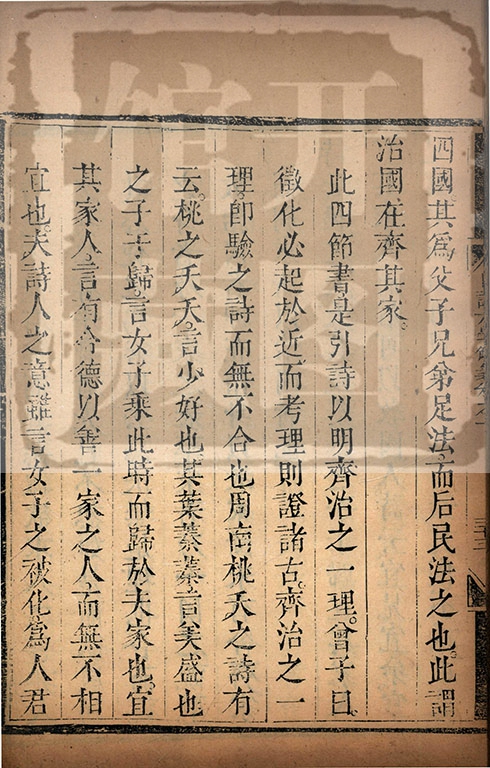 四國其為父子兄弟足法而后民法之也此謂
治國在齊其家
此四節書是引詩以明齊治之一理曾子曰
徵化必起於近而考理則證諸古齊治之一
理即驗之詩而無不合也周南桃夭之詩有
云桃之夭夭言少好也其葉蓁蓁言美盛也
之子于歸言女子乘此時而歸於夫家也宜
其家人言有令德以善一家之人而無不相
宜也夫詩人之意雖言女子之被化為人君